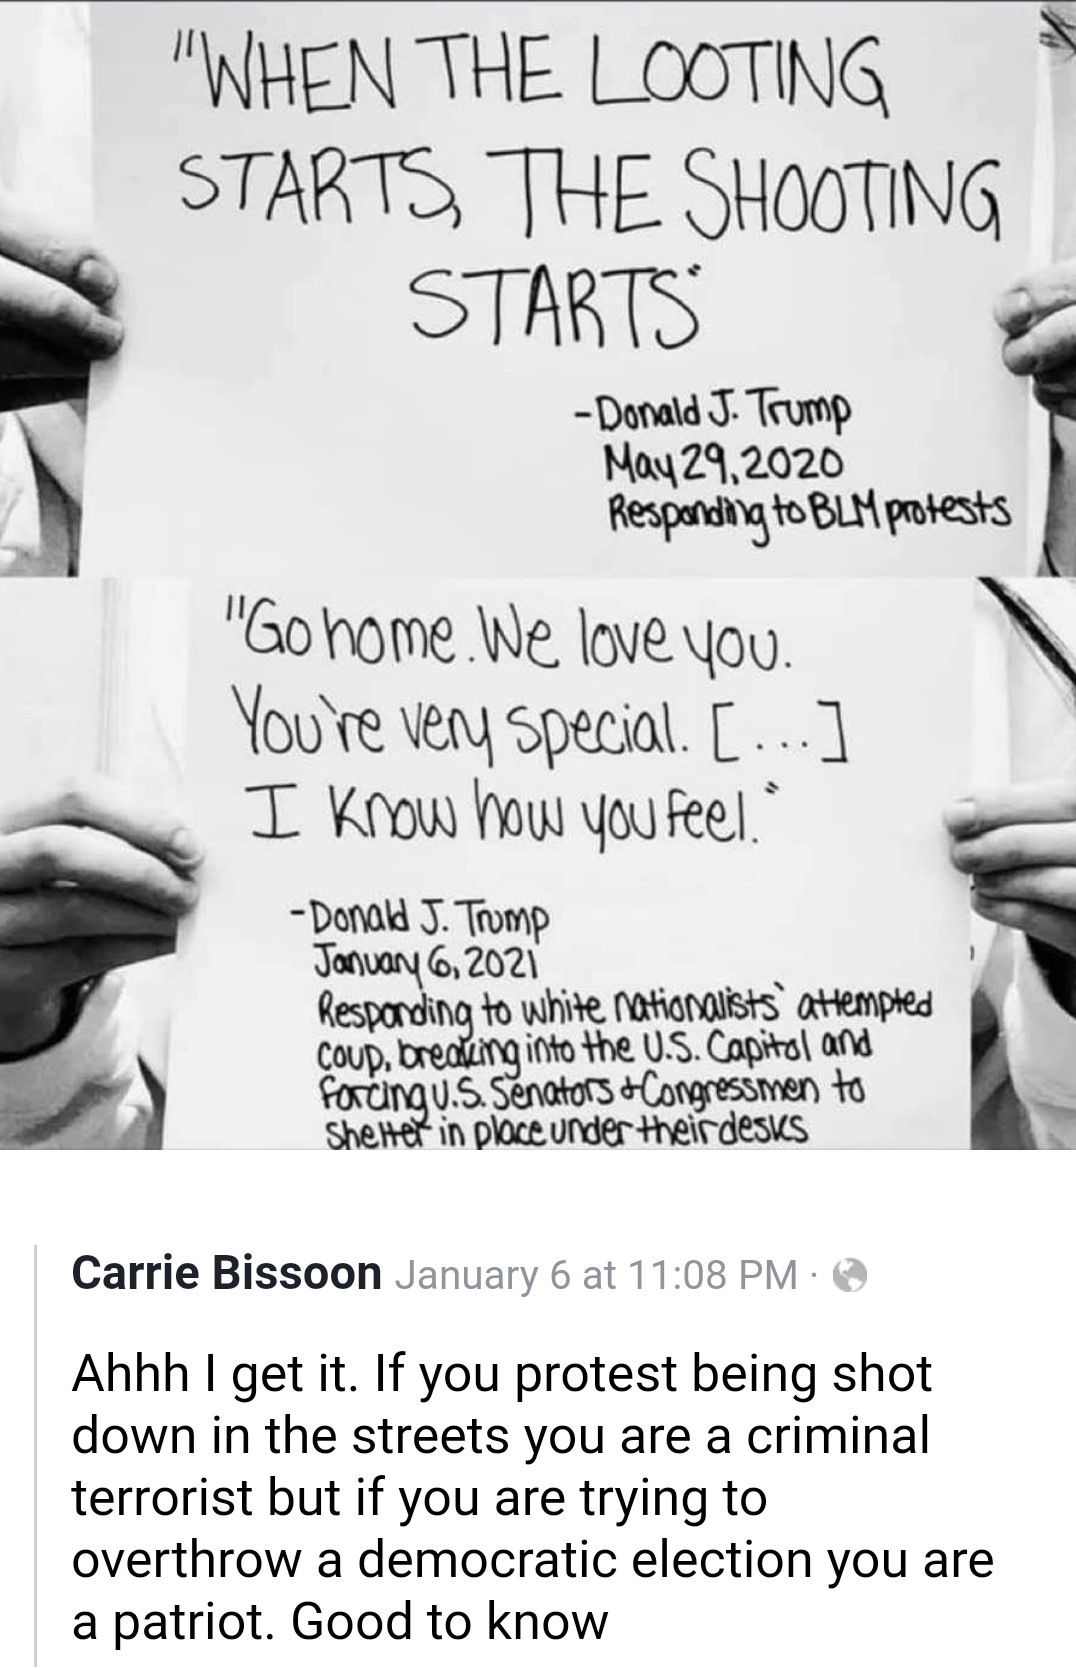 "WHEN THE LOOTING
STARTS, THE SHOOTING
STARTS"
-Donald J. Trump
May 29, 2020
Responding to BLM protests
"Go home. We love you.
You're very special. [...]
I know how you feel."
-Donald J. Trump
January 6, 2021
Responding to white nationalists' attempted
coup, breaking into the U.S. Capitol and
forcing U.S. Senators & Congressmen to
shelter in place under their desks
Carrie Bissoon January 6 at 11:08 PM ·
Ahhh I get it. If you protest being shot
down in the streets you are a criminal
terrorist but if you are trying to
overthrow a democratic election you are
a patriot. Good to know